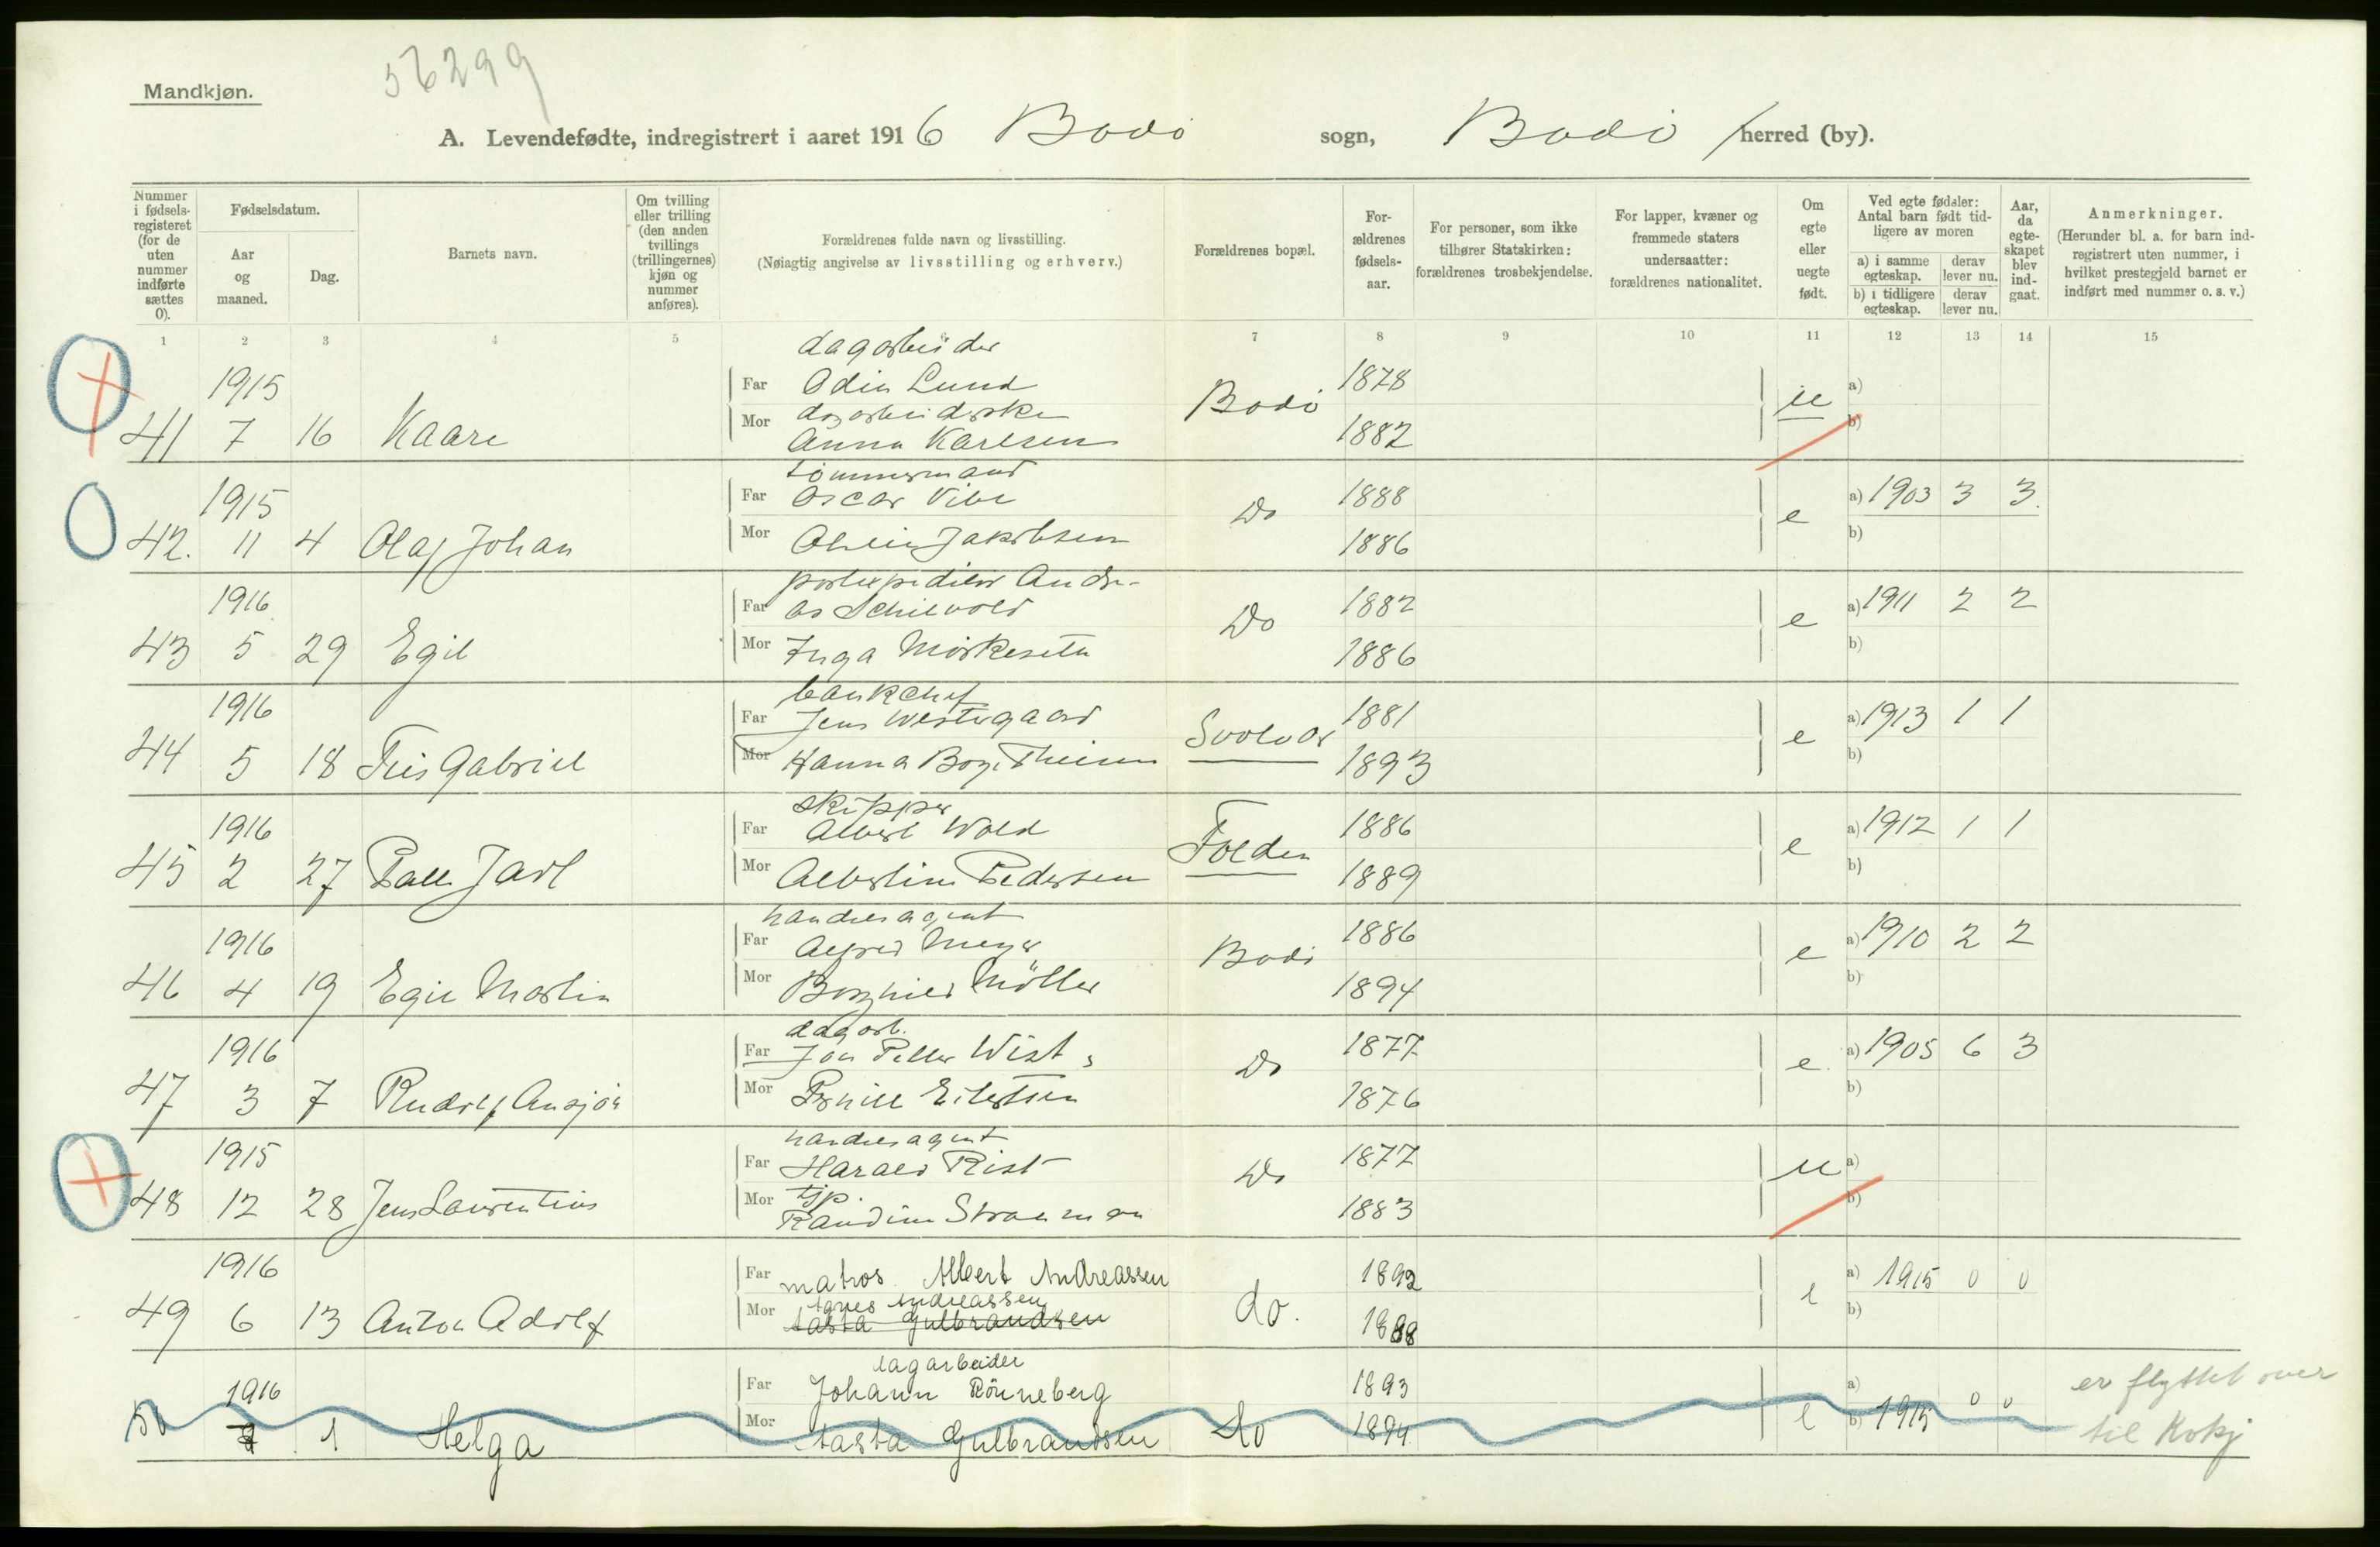 56299
Mandkjøn.
A. Levendefødte, indregistrert i aaret 1916 Bodø sogn, Bodø herred (by).
Nummer i fødsels-registeret (for de uten nummer indførte sættes 0).
Fødselsdatum.
Aar og maaned.
Dag.
Barnets navn.
Om tvilling eller trilling (den anden tvillings (trillingernes) kjøn og nummer anføres).
Forældrenes fulde navn og livsstilling.
(Nøiagtig angivelse av livsstilling og erhverv.)
Forældrenes bopæl.
For-ældrenes fødsels-aar.
For personer, som ikke tilhører Statskirken: forældrenes trosbekjendelse.
For lapper, kvæner og fremmede staters undersaatter: forældrenes nationalitet.
Om egte eller uegte født.
Ved egte fødsler: Antal barn født tid-ligere av moren
a) i samme egteskap. derav lever nu.
b) i tidligere egteskap. derav lever nu.
Aar, da egte-skapet blev ind-gaat.
Anmerkninger.
(Herunder bl. a. for barn ind-registrert uten nummer, i hvilket prestegjeld barnet er indført med nummer o. s. v.)
1 2 3 4 5 6 7 8 9 10 11 12 13 14 15
dagarbeider
1915 Far Odin Lund 1878 a)
41 7 16 Kaare Mor dagarbeiderske Bodø u b)
Anna Karlsen 1882
tømmermand
1915 Far Oscar Vibe 1888 a) 1903 3 3
42. 11 4 Olaf Johan Mor Jakobsen Do 1886 e b)
postexpeditør Andre-
1916 Far as Schiewold 1882 a) 1911 2 2
43 5 29 Egil Mor Inga Mørkeseth Do 1886 e b)
bankchef
1916 Far Jens Westergaard 1881 a) 1913 1 1
44 5 18 Friis Gabriel Mor Hanna Theisen Svolvær 1893 e b)
skipper
1916 Far Albert Wold 1886 a) 1912 1 1
45 2 27 Palle Jarl Mor Albertine Pedersen Folden 1889 e b)
handelsagent
1916 Far Alfred Meyer 1886 a) 1910 2 2
46 4 19 Egil Martin Mor Borghild Möller Bodø 1894 e b)
dagarb.
1916 Far Jon Peller Wist, 1877 a) 1905 6 3
47 3 7 Rudolf Ansjøn Mor Pernille Eilertsen Do 1876 e b)
handelsagent
1915 Far Harald Rist 1877 a)
48 12 28 Jens Laurentius Mor tjp. Do u b)
Randine Straumann 1883
1916 Far matros Albert Andreassen 1892 a) 1915 0 0
Agnes Andreassen
49 6 13 Anton Adolf Mor Tasta Gulbrandsen do. 1888 e b)
dagarbeider
1916 Far Johann Rönneberg 1893 a) 0 0 er flyttet over
50 1 Helga Mor Tasta Gulbrandsen do 1894 e b) 1915 til Kvkj